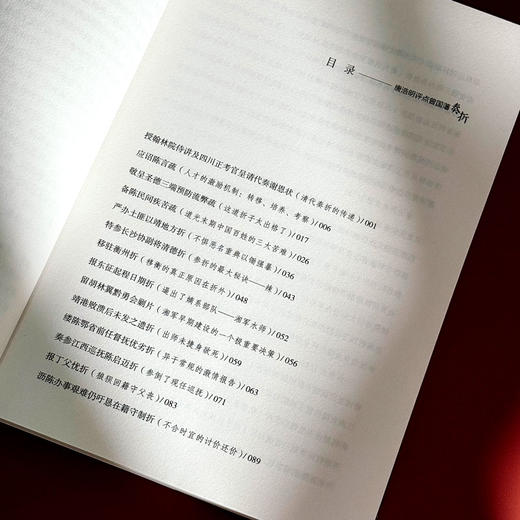 目录——唐浩明评点曾国藩奏折
授翰林院侍讲及四川正考官呈请代奏谢恩状（请代奏折的传递）/001
应诏陈言疏（人才的激励机制：转移、培养、考察）/006
敬呈圣德三端预防流弊疏（这道折子大出格了）/017
备陈民间疾苦疏（道光末期中国百姓的三大苦难）/026
严办土匪以靖地方折（不惧恶名重典以锄强暴）/036
特参长沙协副将清德折（参折的最大秘诀——辣）/043
移驻衡州折（移衡的真正原因在折外）/048
报东征起程日期折（逼出了嫡系部队——湘军水师）/052
留胡林翼黔勇会剿片（湘军早期建设的一个很重要决策）/056
靖港败溃后未发之遗折（出师未捷身欲死）/059
缕陈鄂省前任督抚优劣折（异于常规的激情报告）/063
奏参江西巡抚陈启迈折（参倒了现任巡抚）/071
报丁父忧折（狼狈回籍守父丧）/083
沥陈办事艰难仍吁恳在籍守制折（不合时宜的讨价还价）/089